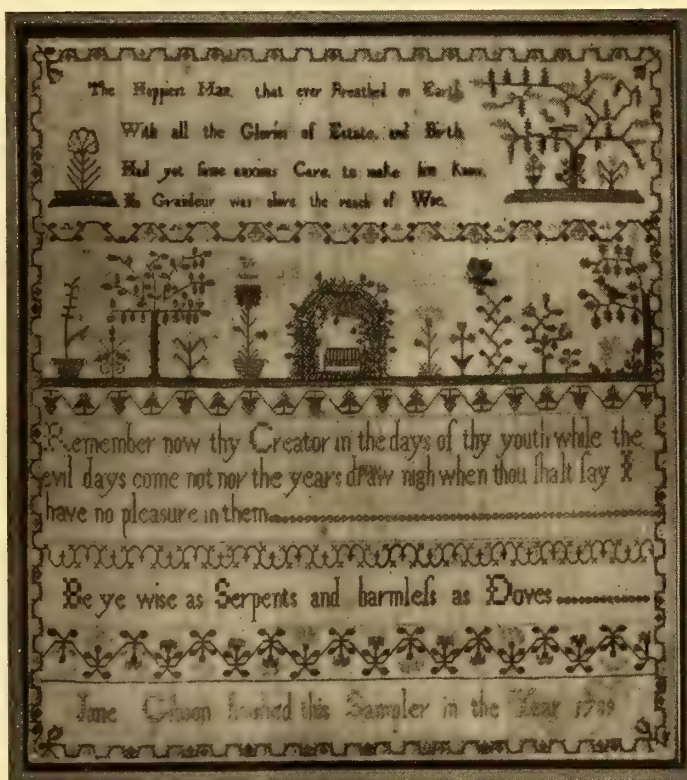 The Happiest Man, that ever Breathed on Earth
With all the Glories of Estate, and Birth,
Had yet some anxious Care, to make him know,
No Grandeur was above the reach of Woe.
Remember now thy Creator in the days of thy youth while the
evil days come not nor the years draw nigh when thou ſhalt ſay I
have no pleasure in them
Be ye wise as Serpents and harmleſs as Doves
Jane finished this Sampler in the Year